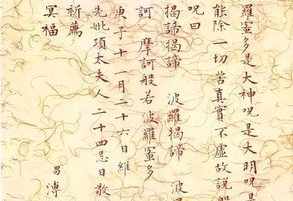 羅蜜多是大神呪是大明呪是
能除一切苦真實不虛故說般
呪曰
揭諦揭諦 波羅揭諦 波
訶 摩訶般若波羅蜜多
庚子十一月二十六日維
先妣項太夫人二十四忌日敬
祈薦
冥福
男溥